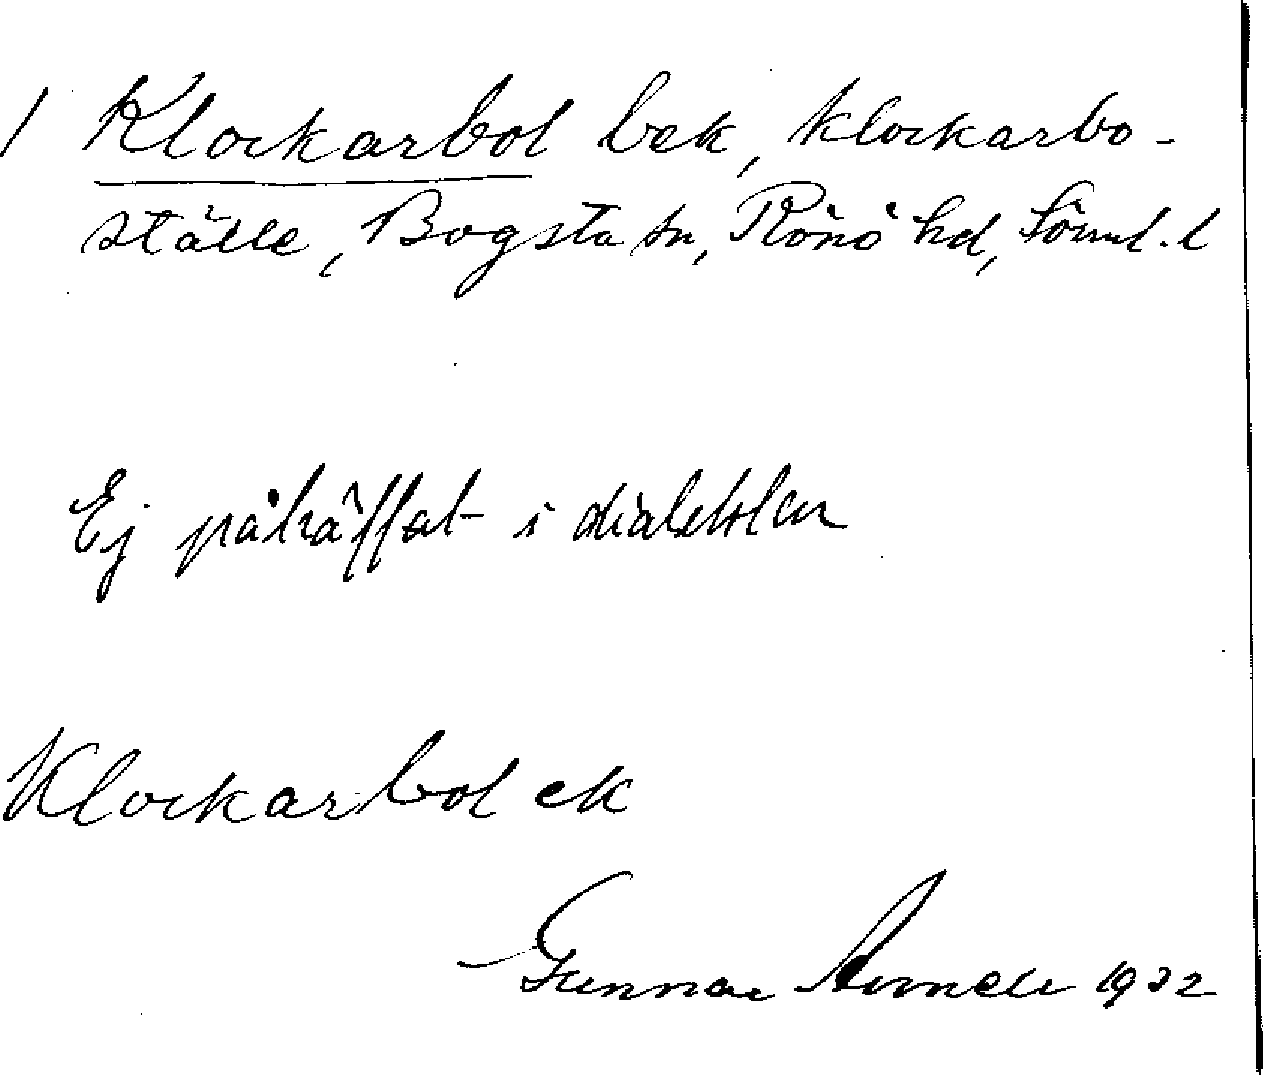 / Klockarbol bek, klockarbo-
ställe, Bogsta sn, Rönö hd, Söml. l
Ej påträffat i dialekten
Klockarbol ek
Gunnar 1932